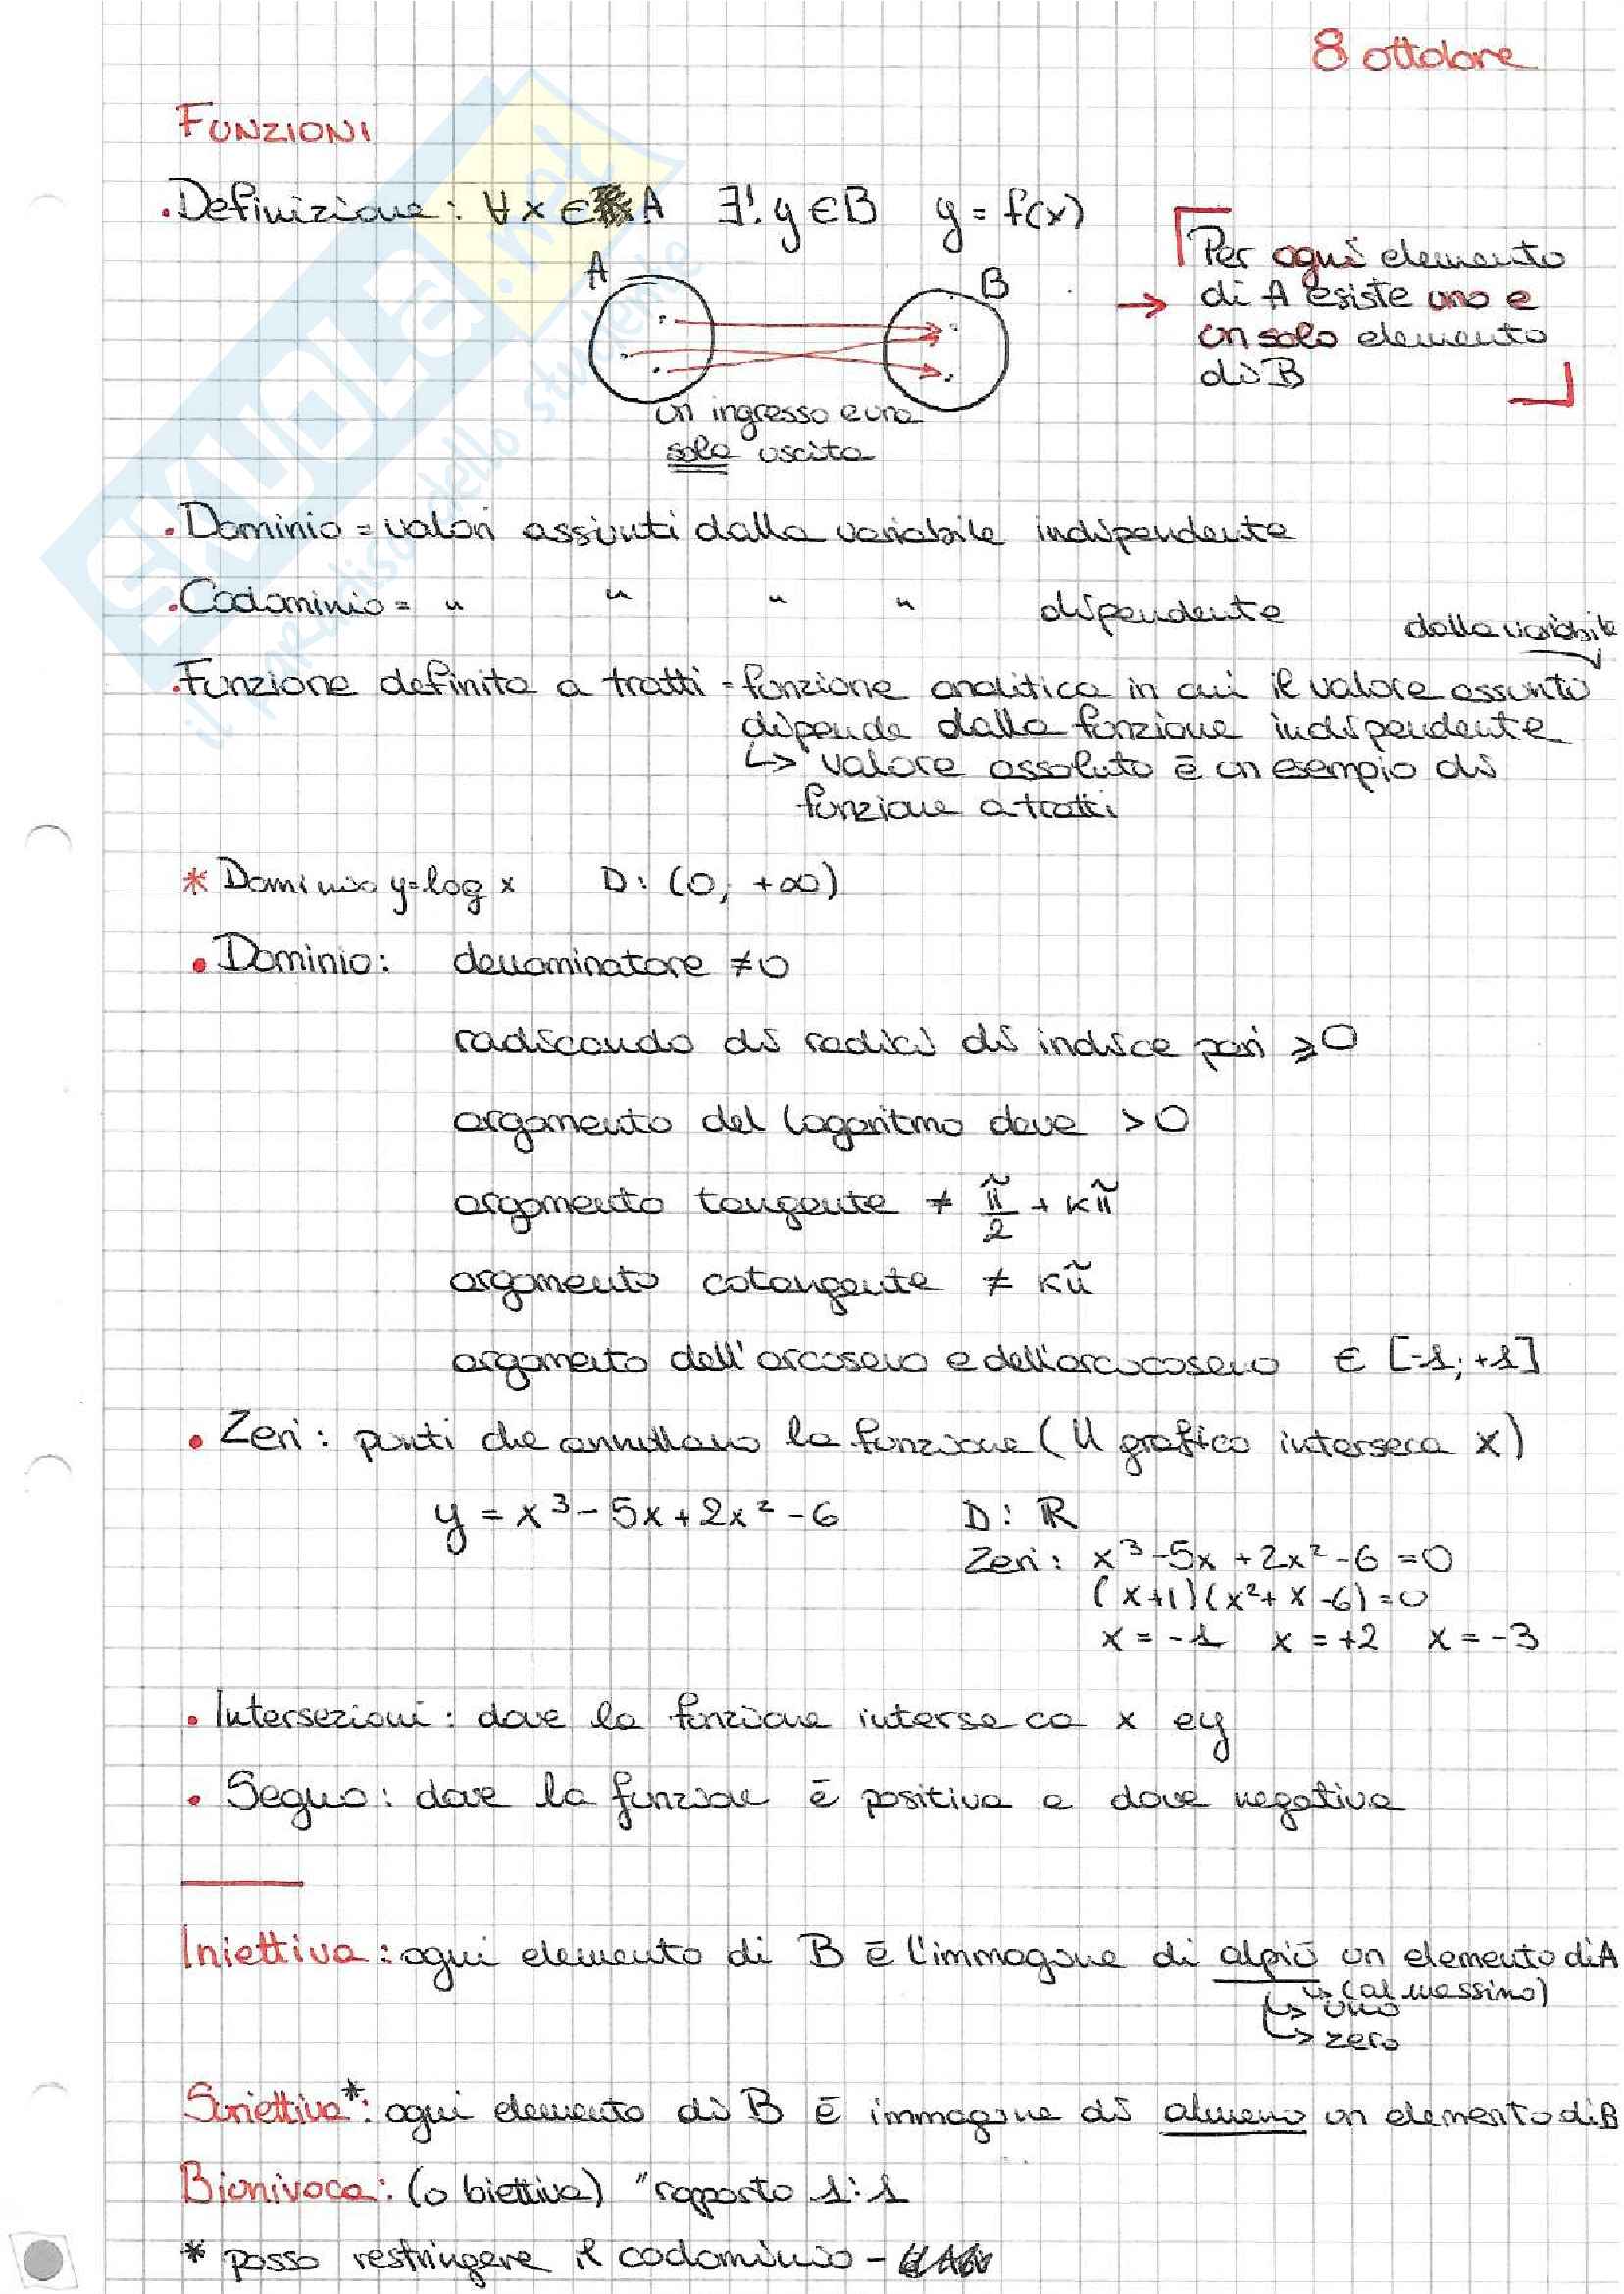 8 ottobre
FUNZIONI
• Definizione: ∀x ∈ A ∃! y ∈ B y = f(x)
A
B
Per ogni elemento
→ di A esiste uno e
un solo elemento
di B
un ingresso e una
sola uscita
• Dominio = valori assunti dalla variabile indipendente
• Codominio = " " " " dipendente
dalla variabile
• Funzione definita a tratti = funzione analitica in cui il valore assunto
dipende dalla funzione indipendente
↳ valore assoluto è un esempio di
funzione a tratti
* Dominio y=log x D: (0; +∞)
• Dominio: denominatore ≠0
radicando di radici di indice pari ≥0
argomento del logaritmo deve >0
argomento tangente ≠ π/2 + kπ
argomento cotangente ≠ kπ
argomento dell'arcoseno e dell'arcocoseno ∈ [-1; +1]
• Zeri: punti che annullano la funzione (il grafico interseca x)
y = x³ - 5x + 2x² - 6 D: ℝ
Zeri: x³ - 5x + 2x² - 6 = 0
(x+1)(x²+x-6)=0
x = -1 x = +2 x = -3
• Intersezioni: dove la funzione interseca x e y
• Segno: dove la funzione è positiva e dove negativa
Iniettiva: ogni elemento di B è l'immagine di alpiù un elemento di A
↳ (al massimo)
↳ uno
↳ zero
Suriettiva*: ogni elemento di B è immagine di almeno un elemento di B
Biunivoca: (o biettiva) "rapporto 1:1
* posso restringere il codominio -
SKUOLA.net
il paradiso dello studente